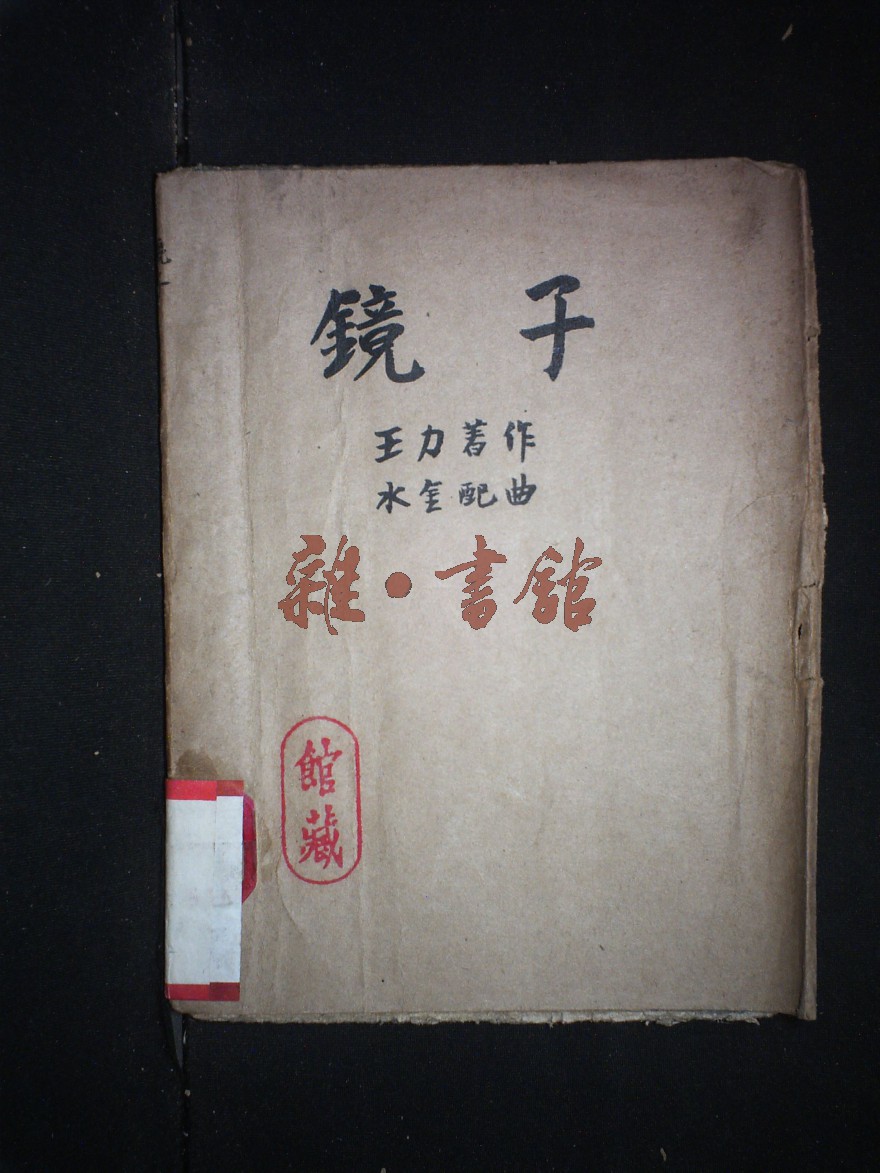 鏡子
王力著作
水金配曲
雜·書館
館藏